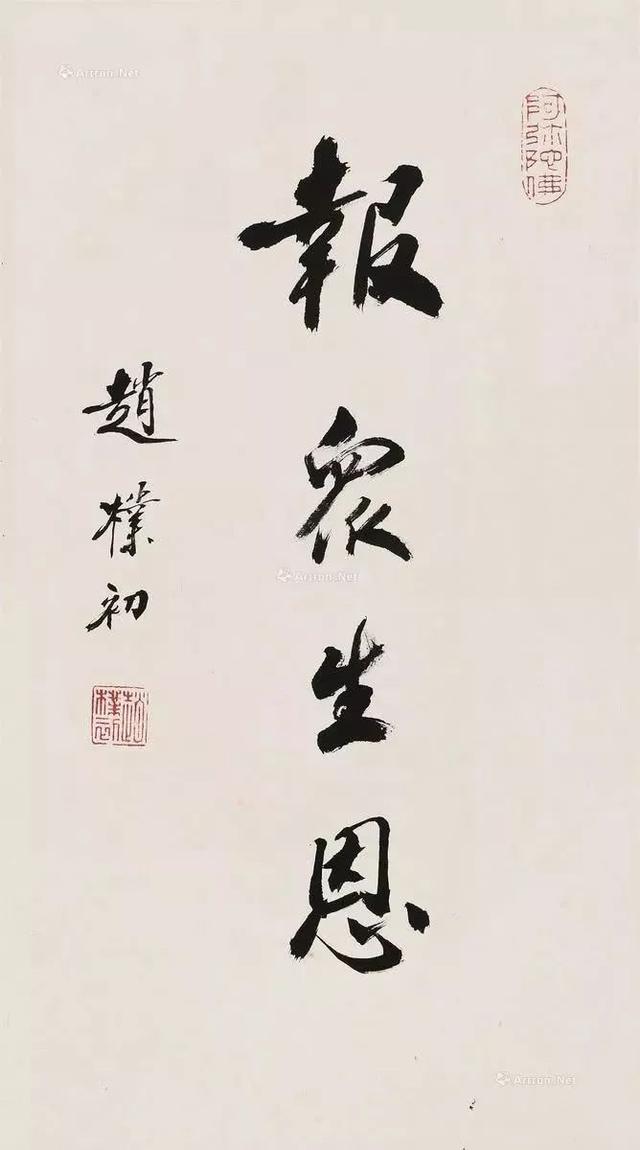 阿弥陀佛
報眾生恩
趙樸初
趙樸初
Artron.Net
Artron.Net
Artron.Net